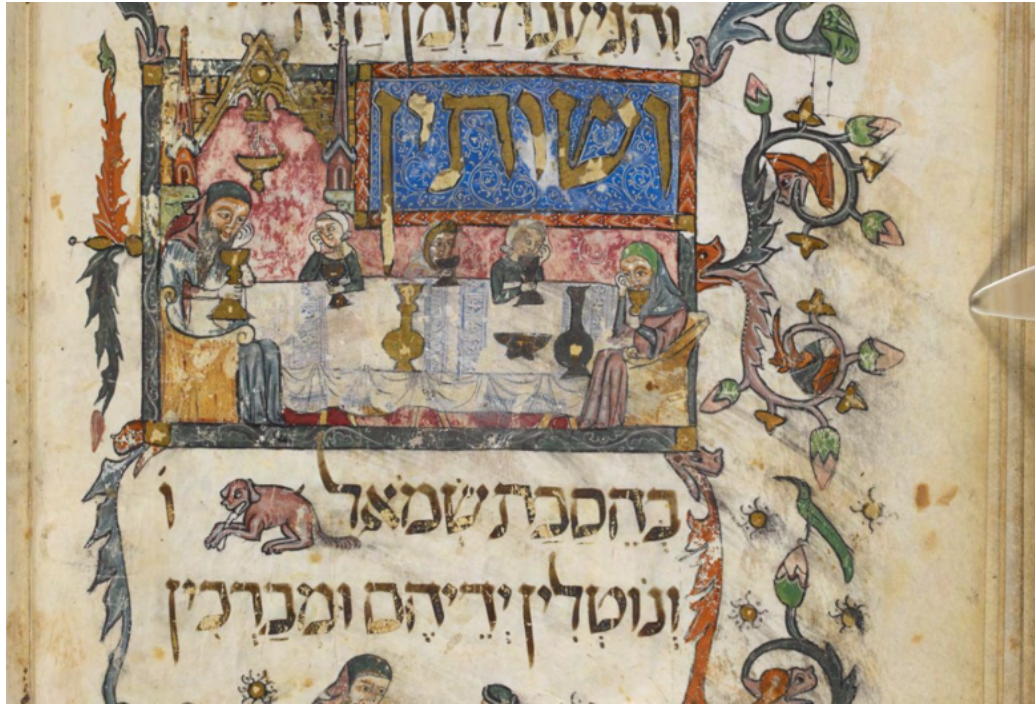 וְהִגִּיעָנוּ לַזְּמַן הַזֶּה
ושותין
בְּהֵסַבַּת שְׂמֹאל וֹ
וְנוֹטְלִין יְדֵיהֶם וּמְבָרְכִין